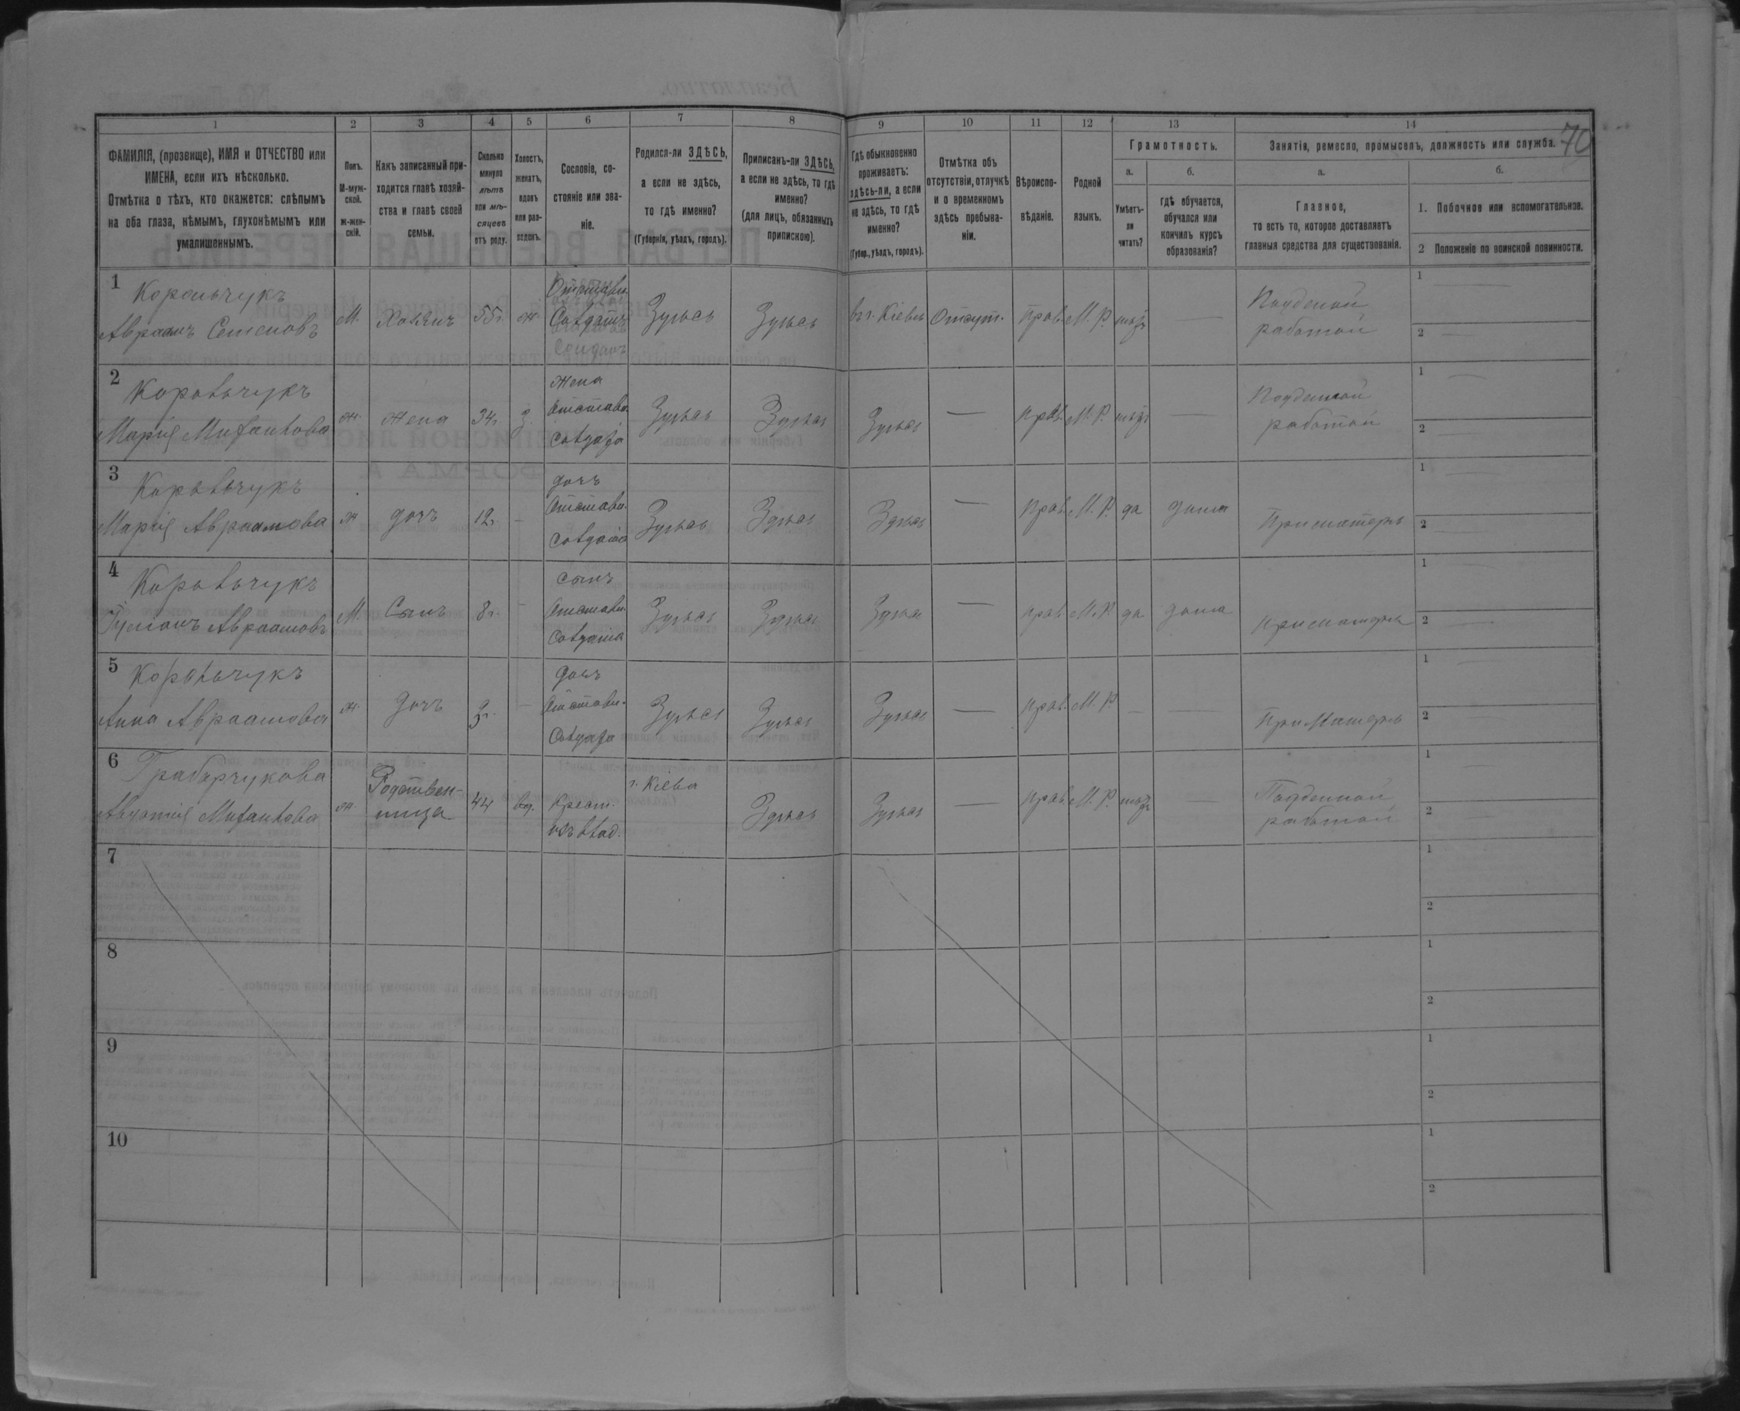 70
1 2 3 4 5 6 7 8 9 10 11 12 13 14
ФАМИЛІЯ, (прозвище), ИМЯ и ОТЧЕСТВО или ИМЕНА, если ихъ нѣсколько.
Отмѣтка о тѣхъ, кто окажется: слѣпымъ на оба глаза, нѣмымъ, глухонѣмымъ или умалишеннымъ.
Полъ.
М-муж-
ской.
Ж-жен-
скій.
Какъ записанный при-
ходится главѣ хозяй-
ства и главѣ своей
семьи.
Сколько
минуло
лѣтъ
или мѣ-
сяцевъ
отъ роду.
Холостъ,
женатъ,
вдовъ
или раз-
веденъ.
Сословіе, со-
стояніе или зва-
ніе.
Родился-ли ЗДѢСЬ,
а если не здѣсь,
то гдѣ именно?
(Губернія, уѣздъ, городъ).
Приписанъ-ли ЗДѢСЬ,
а если не здѣсь, то гдѣ
именно?
(для лицъ, обязанныхъ
припискою).
Гдѣ обыкновенно
проживаетъ:
здѣсь-ли, а если
не здѣсь, то гдѣ
именно?
(Губер., уѣздъ, городъ).
Отмѣтка объ
отсутствіи, отлучкѣ
и о временномъ
здѣсь пребыва-
ніи.
Вѣроиспо-
вѣданіе.
Родной
языкъ.
Грамотность.
а.
Умѣетъ-
ли
читать?
б.
гдѣ обучается,
обучался или
кончилъ курсъ
образованія?
Занятіе, ремесло, промыселъ, должность или служба.
а.
Главное,
то есть то, которое доставляетъ
главныя средства для существованія.
б.
1. Побочное или вспомогательное.
2 Положеніе по воинской повинности.
1
Корольчукъ
Авраамъ Семеновъ
М. Хозяинъ 55 ж. Отставн. Солдатъ Здѣсь Здѣсь въ г. Кіевѣ Отсут. прав. М. Р. нѣтъ —
Поденной
работой
1 —
2 —
2
Корольчукъ
Марія
ж. жена 34
жена
отставн.
солдата
Здѣсь Здѣсь Здѣсь — прав. М. Р. нѣтъ —
Поденной
работой
1 —
2 —
3
Корольчукъ
Марія Авраамова
ж дочь 12 —
дочь
отставн.
солдата
Здѣсь Здѣсь Здѣсь — прав. М. Р. да дома При матери
1 —
2 —
4
Корольчукъ
Авраамовъ
М. Сынъ 8 —
сынъ
отставн.
солдата
Здѣсь Здѣсь Здѣсь — прав. М. Р. да дома при матери
1 —
2 —
5
Корольчукъ
Анна Авраамова
ж. дочь —
дочь
отставн.
солдата
Здѣсь Здѣсь Здѣсь — прав. М. Р. — — При матери
1 —
2 —
6
Грабарчукова
ж. Родствен-
ница
44 вд.
Крест.
изъ влад.
г. Кіева Здѣсь Здѣсь — прав. М. Р. нѣтъ —
Поденной
работой
1 —
2 —
7
1
2
8
1
2
9
1
2
10
1
2